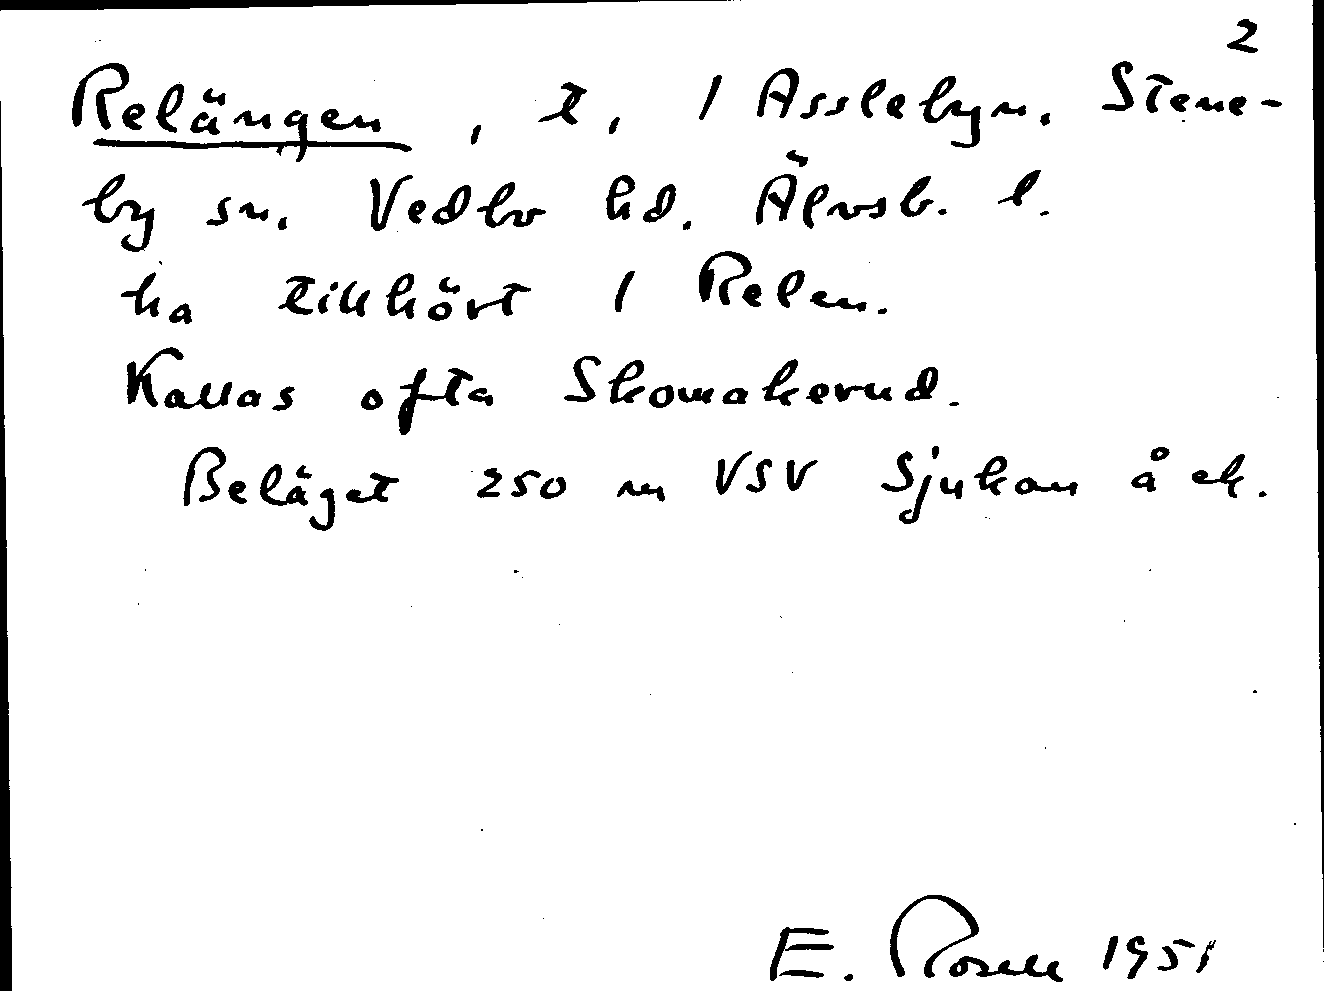 2
Relängen, t, 1 Asslebyn. Stene-
by sn. Vedbo hd. Älvsb. l.
ha tillhört 1 Relen.
Kallas ofta Skomakerud.
Beläget 250 m VSV Sjukan å ek.
E. Rosell 1951